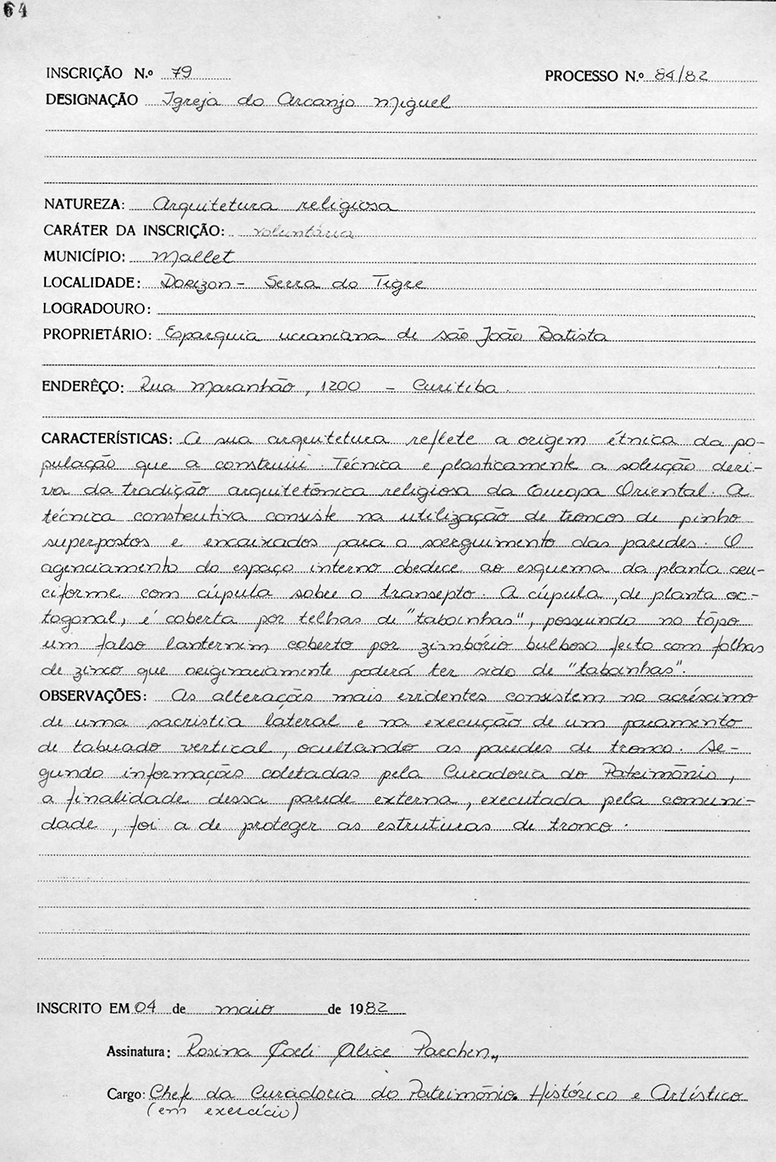 64
INSCRIÇÃO N.º 79 PROCESSO N.º 84/82
DESIGNAÇÃO Igreja do Arcanjo Miguel
NATUREZA: Arquitetura religiosa
CARÁTER DA INSCRIÇÃO: voluntária
MUNICÍPIO: Mallet
LOCALIDADE: Dorizon - Serra do Tigre
LOGRADOURO:
PROPRIETÁRIO: Eparquia ucraniana de são João Batista
ENDERÊÇO: Rua Maranhão, 1200 - Curitiba.
CARACTERÍSTICAS: A sua arquitetura reflete a origem étnica da po-
pulação que a construiu. Técnica e plasticamente a solução deri-
va da tradição arquitetônica religiosa da Europa Oriental. A
técnica construtiva consiste na utilização de troncos de pinho
superpostos e encaixados para o soerguimento das paredes. O
agenciamento do espaço interno obedece ao esquema da planta cru-
ciforme com cúpula sobre o transepto. A cúpula, de planta oc-
togonal, é coberta por telhas de "taboinhas", possuindo no tôpo
um falso lanternim coberto por zimbório bulboso feito com folhas
de zinco que originariamente poderá ter sido de "tabainhas".
OBSERVAÇÕES: As alterações mais evidentes consistem no acréscimo
de uma sacristia lateral e na execução de um paramento
de tabuado vertical, ocultando as paredes de tronco. Se-
gundo informações coletadas pela Curadoria do Patrimônio,
a finalidade dessa parede externa, executada pela comuni-
dade, foi a de proteger as estruturas de tronco.
INSCRITO EM 04 de maio de 1982
Assinatura: Rosina Coeli Alice Parchen
Cargo: Chefe da Curadoria do Patrimônio Histórico e Artístico
(em exercício)